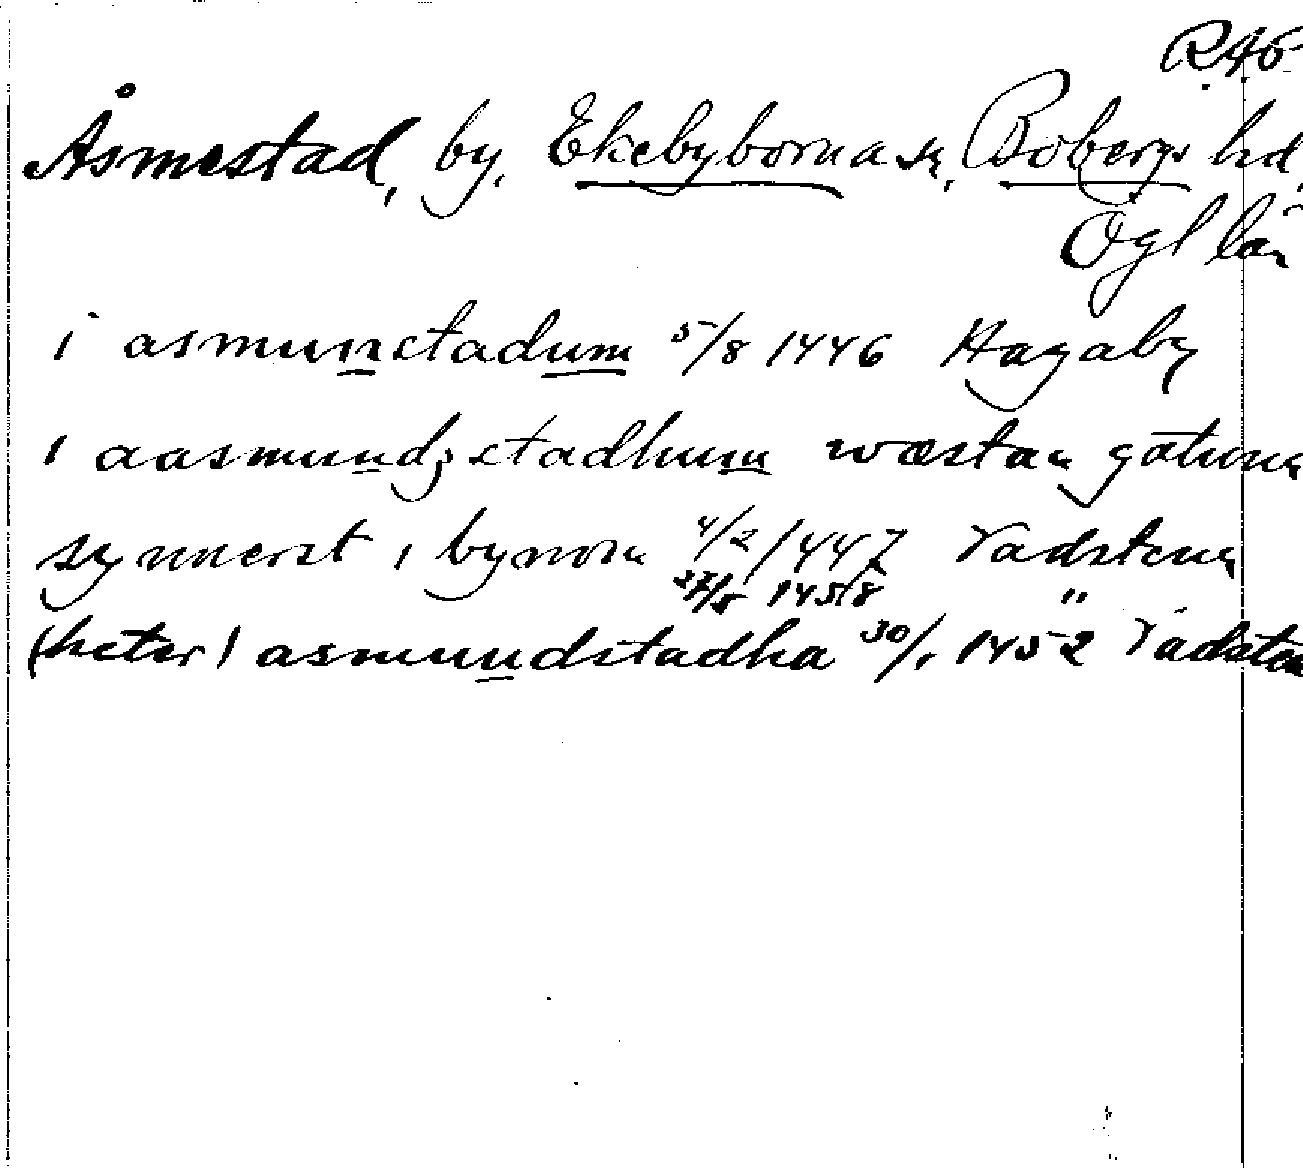 R 46
Åsmestad, by, Ekebyborna sn, Bobergs hd,
Ögl län
i asmunstadum 5/8 1446 Hagaby
i aasmundzstadhum wæstan gatuna
synnerst i bynom 4/2 1447 Vadstena
27/8 1458 "
(heter) asmundstadha 30/1 1452 Vadstena